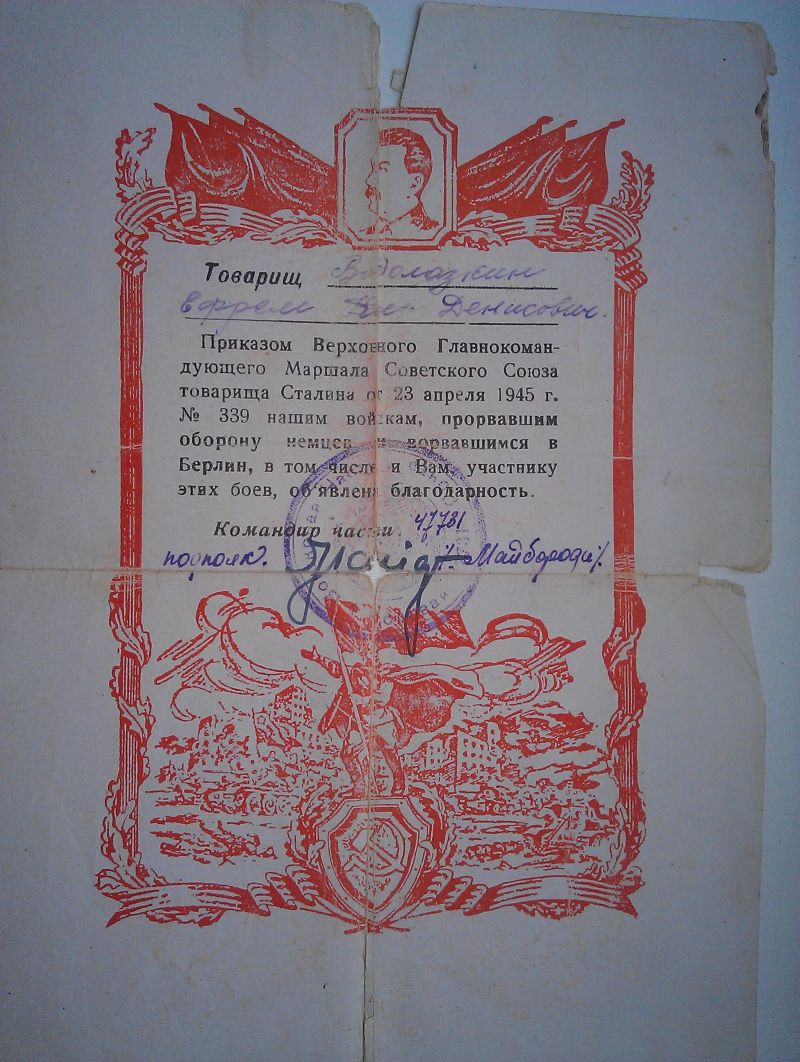 Товарищ Водолазкин
Ефрем Денисович.
Приказом Верховного Главнокоман-
дующего Маршала Советского Союза
товарища Сталина от 23 апреля 1945 г.
№ 339 нашим войскам, прорвавшим
оборону немцев и ворвавшимся в
Берлин, в том числе и Вам, участнику
этих боев, об'явлена благодарность.
Командир части 47731
подполк. /Майборода/.